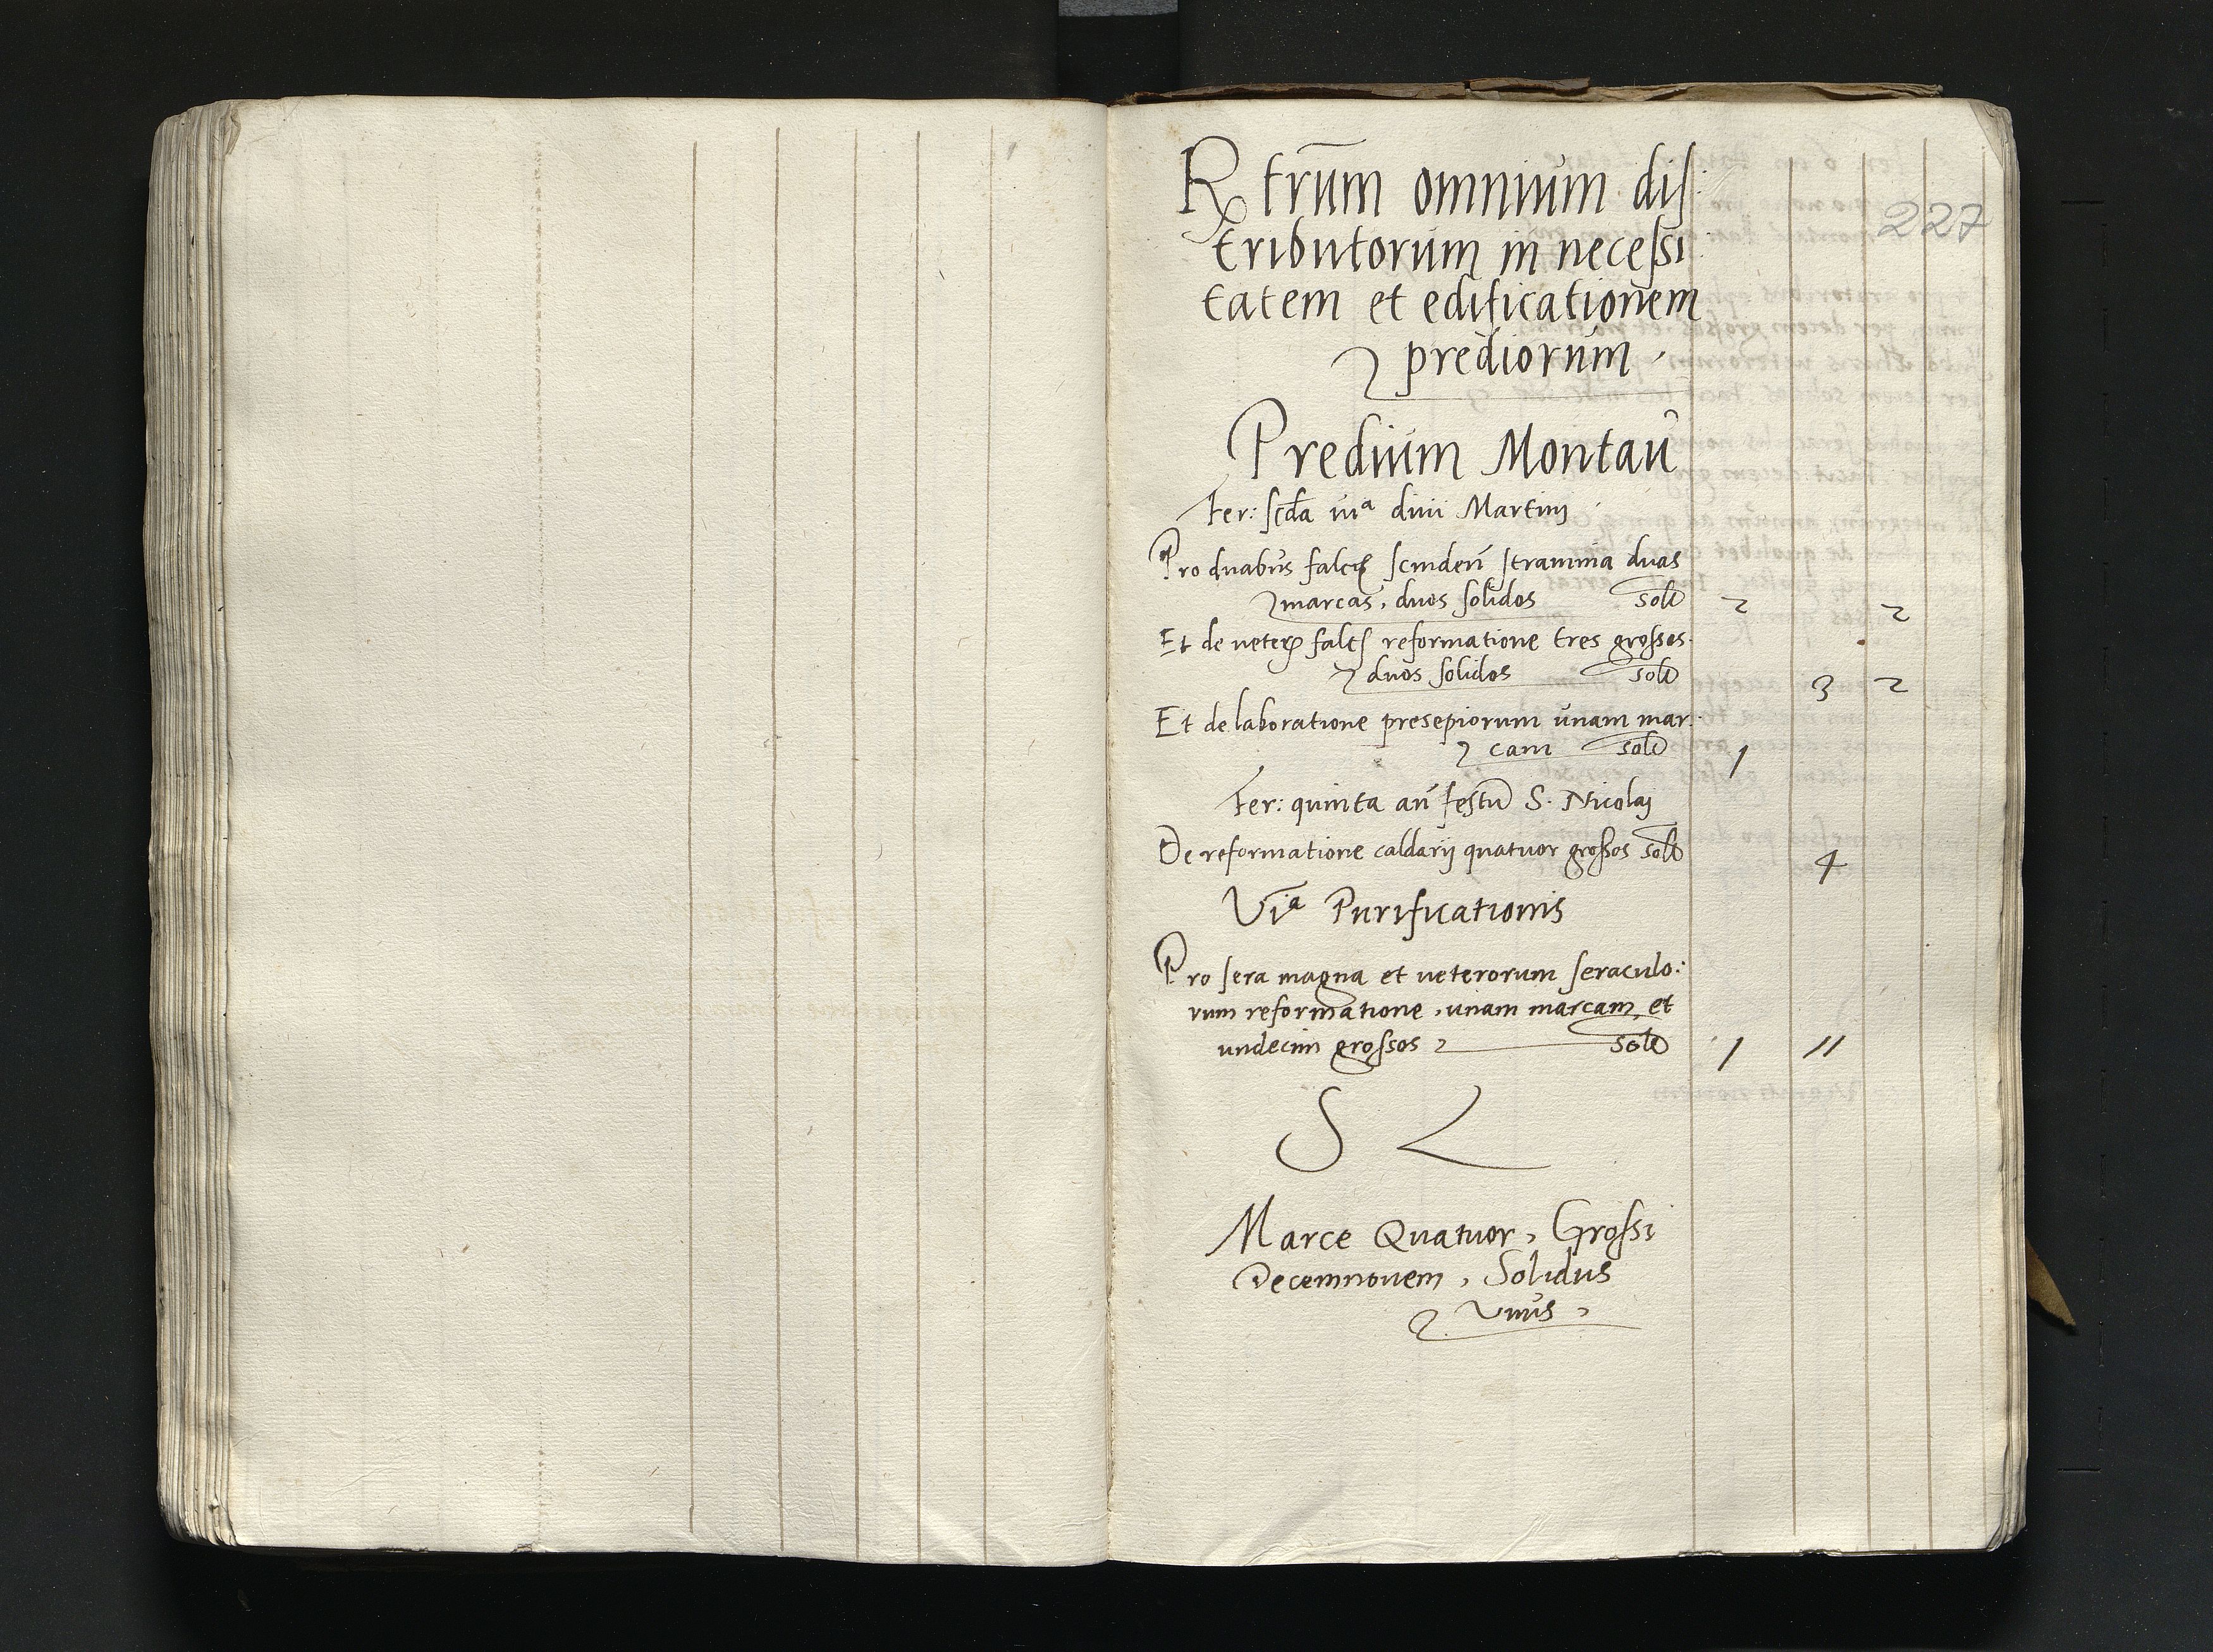 Rtrūm omnium dis:
tributorum in necessi:
tatem et edificationem
prediorum.
227
Predium Montaū
Fer: scda viᵃ divi Martini
Pro duabus falcꝫ scinden̄ stramina duas
marcas, duos solidos solō 2 2
Et de veterꝫ falcꝭ reformatione tres grossos.
duos solidos solō 3 2
Et de laboratione presepiorum unam mar:
cam solō 1
Fer: quinta an̄ festū S. Nicolaj
De reformatione caldarij quatuor grossos solō 4
Viᵃ Purificationis
Pro sera magna et veterorum seraculo:
rum reformatione, unam marcam, et
undecim grossos solō 1 11
S L
Marce Quatuor, Grossi
Decemnovem, Solidus
Unus,